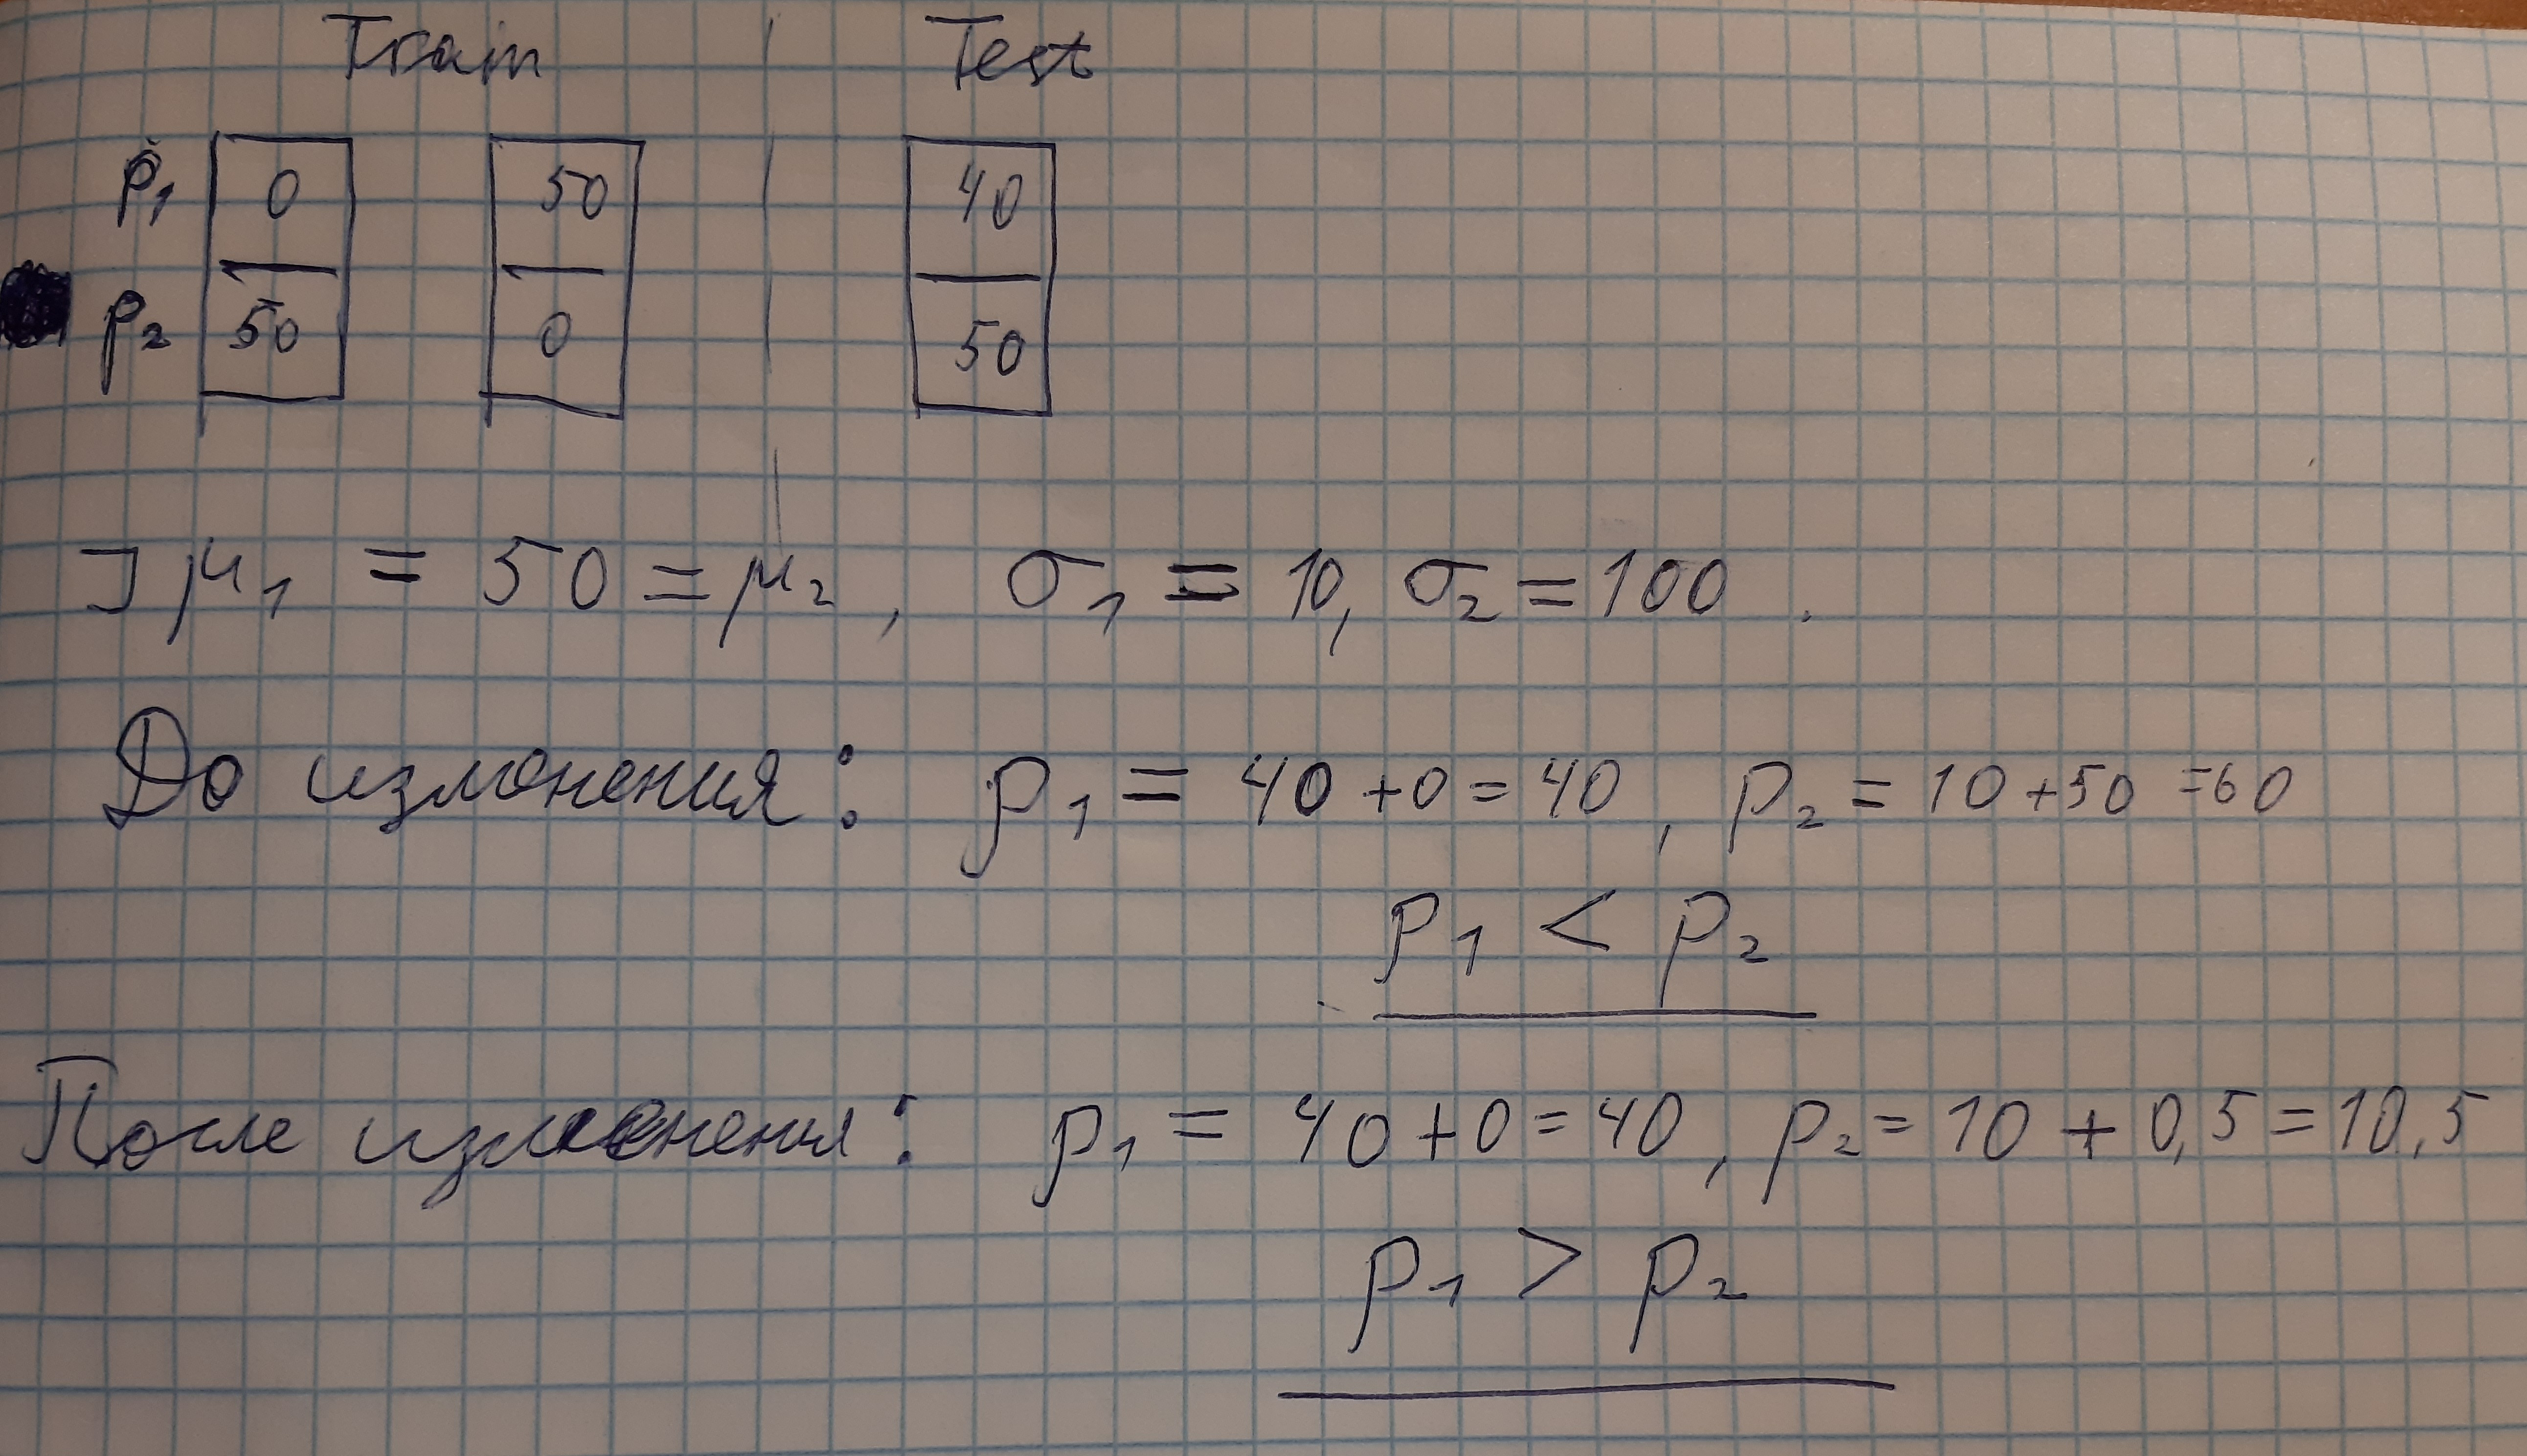 Train Test
p₁ 0 50 40
p₂ 50 0 50
] μ₁ = 50 = μ₂, σ₁ = 10, σ₂ = 100.
До изменения: p₁ = 40 + 0 = 40, p₂ = 10 + 50 = 60
p₁ < p₂
После изменения: p₁ = 40 + 0 = 40, p₂ = 10 + 0,5 = 10,5
p₁ > p₂